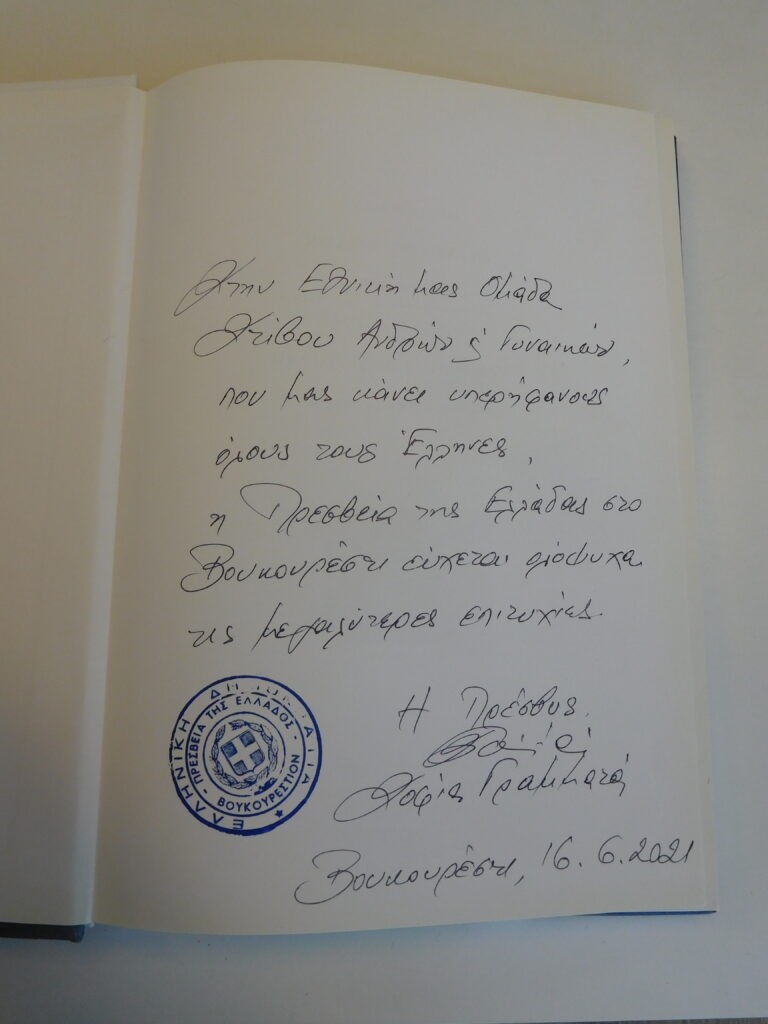 Στην Εθνική μας Ομάδα
Στίβου Ανδρών & Γυναικών,
που μας κάνει υπερήφανους
όλους τους Έλληνες,
η Πρεσβεία της Ελλάδας στο
Βουκουρέστι εύχεται ολόψυχα
τις μεγαλύτερες επιτυχίες.
Η Πρέσβυς
Σοφία Γραμματά
Βουκουρέστι, 16.6.2021
ΕΛΛΗΝΙΚΗ ΔΗΜΟΚΡΑΤΙΑ
- ΠΡΕΣΒΕΙΑ ΤΗΣ ΕΛΛΑΔΟΣ -
ΒΟΥΚΟΥΡΕΣΤΙΟΝ